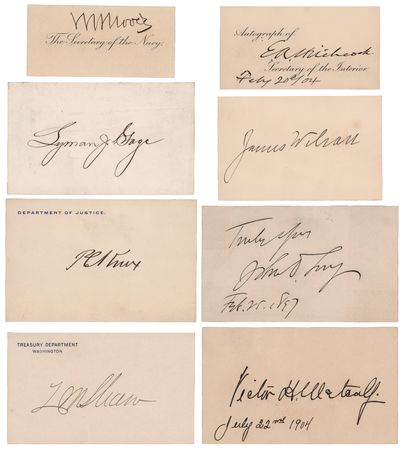 WH Moody
The Secretary of the Navy.
Autograph of
E A Hitchcock
Secretary of the Interior
Feby 20th/04
Lyman J Gage
James Wilson
DEPARTMENT OF JUSTICE.
P C Knox
Truly yrs
John D. Long
Feb. 25. 1897
TREASURY DEPARTMENT
WASHINGTON
L M Shaw
Victor H. Metcalf.
July 22nd 1904